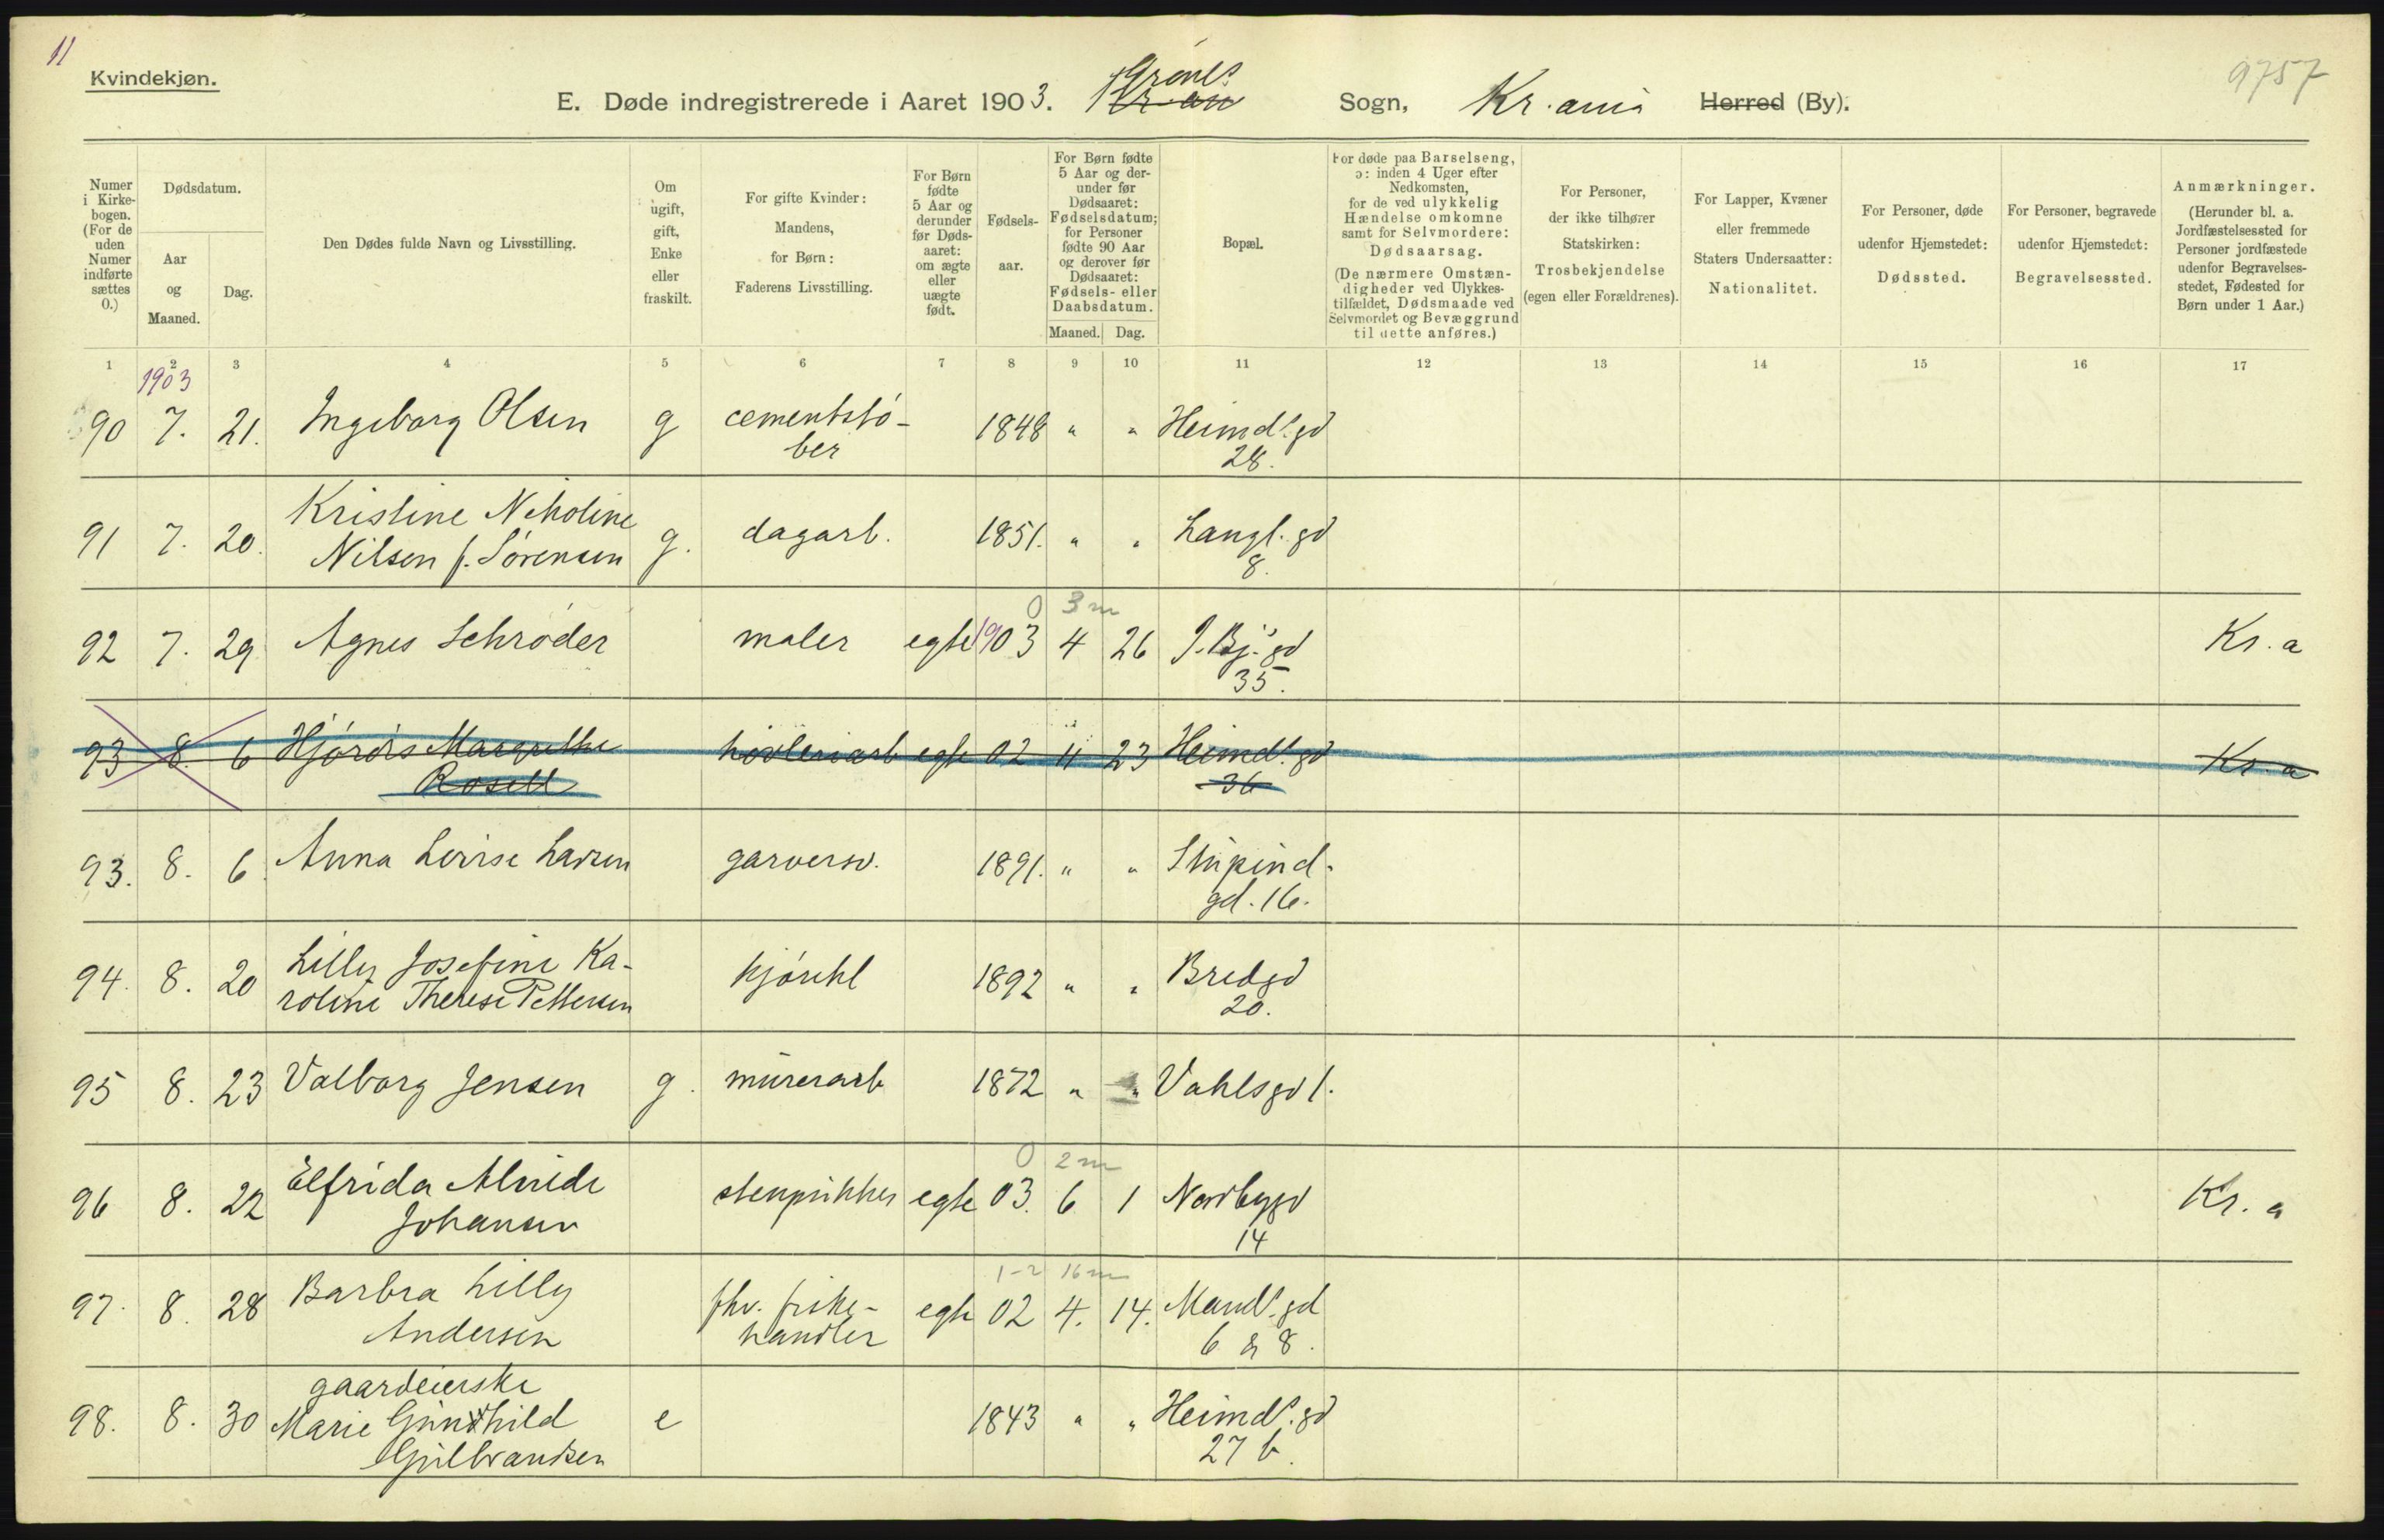 11
Kvindekjøn.
9757
E. Døde indregistrerede i Aaret 1903. Grønl. Sogn, Kr.ania Herred (By).
Numer i Kirkebogen. (For de uden Numer indførte sættes 0.)
Dødsdatum.
Aar og Maaned.
Dag.
Den Dødes fulde Navn og Livsstilling.
Om ugift, gift, Enke eller fraskilt.
For gifte Kvinder: Mandens, for Børn: Faderens Livsstilling.
For Børn fødte 5 Aar og derunder før Dødsaaret: om ægte eller uægte født.
Fødselsaar.
For Børn fødte 5 Aar og derunder før Dødsaaret: Fødselsdatum; for Personer fødte 90 Aar og derover før Dødsaaret: Fødsels- eller Daabsdatum.
Maaned. Dag.
Bopæl.
For døde paa Barselseng, ɔ: inden 4 Uger efter Nedkomsten, for de ved ulykkelig Hændelse omkomne samt for Selvmordere: Dødsaarsag. (De nærmere Omstændigheder ved Ulykkestilfældet, Dødsmaade ved Selvmordet og Bevæggrund til dette anføres.)
For Personer, der ikke tilhører Statskirken: Trosbekjendelse (egen eller Forældrenes).
For Lapper, Kvæner eller fremmede Staters Undersaatter: Nationalitet.
For Personer, døde udenfor Hjemstedet: Dødssted.
For Personer, begravede udenfor Hjemstedet: Begravelsessted.
Anmærkninger. (Herunder bl. a. Jordfæstelsessted for Personer jordfæstede udenfor Begravelsesstedet, Fødested for Børn under 1 Aar.)
1 2 3 4 5 6 7 8 9 10 11 12 13 14 15 16 17
1903
90 7. 21. Ingeborg Olsen g cementstø- 1848 " " Heimdl. gd
ber 28.
Kristine Nikoline
91 7. 20. Nilsen f. Sørensen g. dagarb. 1851. " " Langl. gd
8.
0 3m
92 7. 29 Agnes Schrøder maler egte 1903 4 26 J. Bj. gd Kr. a
35.
93 8. 6 Hjørdis Margrethe høvleriarb egte 02 11 23 Heimdl. gd Kr. a
Rosell 36
93. 8. 6. Anna Lovise Larsen garversv. 1891. " " Stupind-
gd. 16.
94. 8. 20 Lilly Josefine Ka- kjørekl 1892 " " Bredgd
roline Therese Pettersen 20.
95 8. 23 Valborg Jensen g. murerarb 1872 " " Vahlsgd 1.
0 2m
96 8. 22 Elfrida Alvilde stenpikker egte 03. 6 1 Nordbygd Kr. a
Johansen 14
1-2 16m
97. 8. 28 Barbra Lilly fhv. fiske- egte 02 4. 14. Mandl. gd
Andersen handler 6 & 8.
gaardeierske
98. 8. 30 Marie Gunhild e 1843 " " Heimdl. gd
Gulbrandsen 27 b.